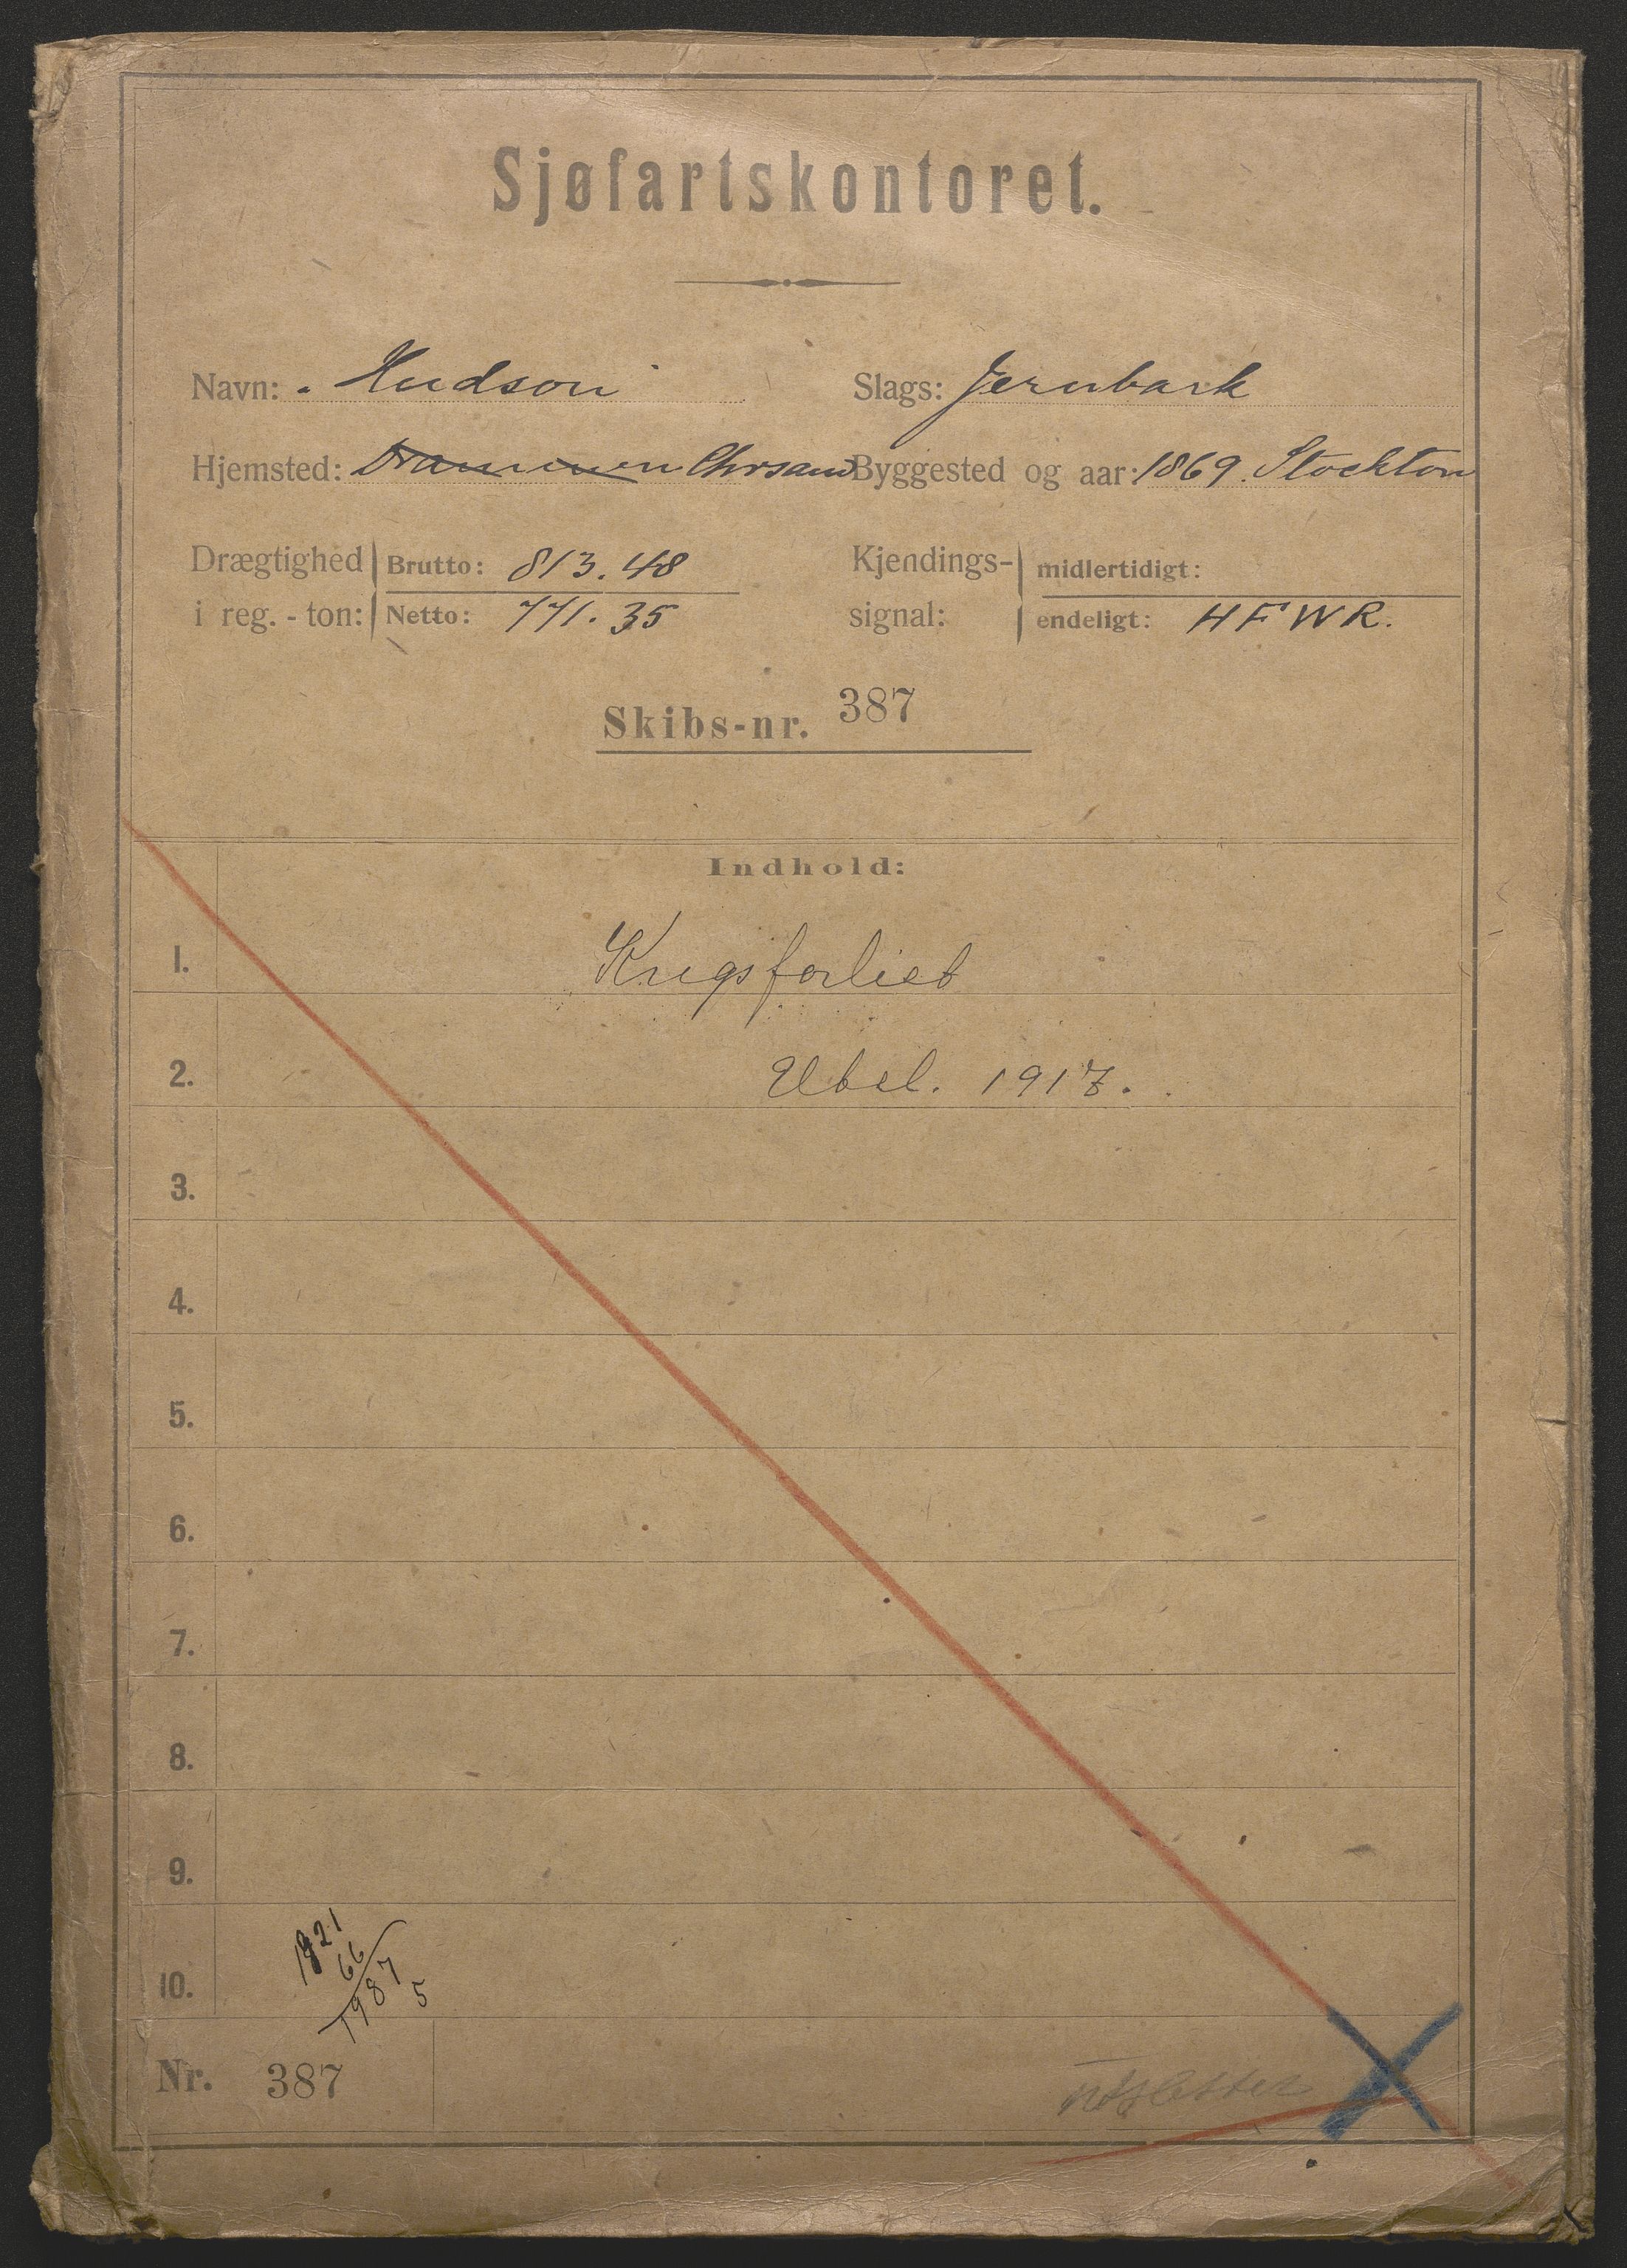 Sjøfartskontoret.
Navn: Hudson Slags: Jernbark
Hjemsted: Drammen Chrsand Byggested og aar: 1869. Stockton
Drægtighed i reg.-ton: Brutto: 813.48 Kjendings-signal: midlertidigt:
Netto: 771.35 endeligt: HFWR.
Skibs-nr. 387
Indhold:
1. Krigsforlist
2. Ubel. 1917.
3.
4.
5.
6.
7.
8.
9.
10.
1921
66
1987
5
Nr. 387